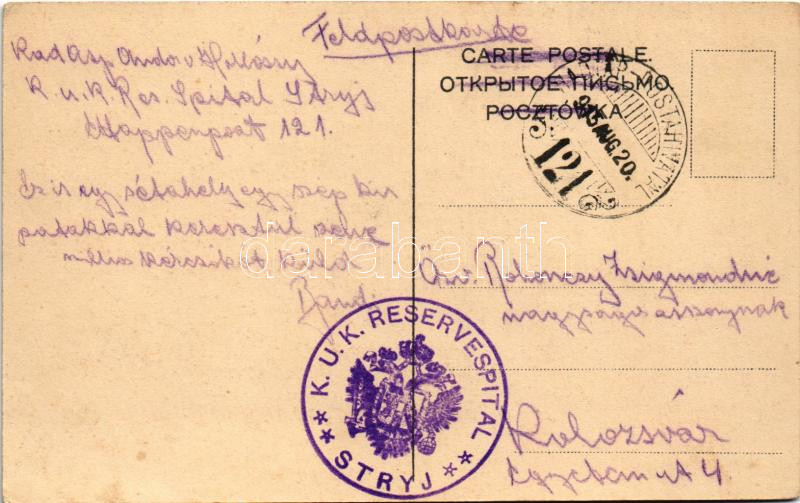 Feldpostkarte
CARTE POSTALE.
ОТКРЫТОЕ ПИСЬМО.
POCZTÓWKA
Kadasp. Andor
K. u. K. Res. Spital Stryj
Etappenpost 121.
Ez is egy sétahely egy szép kis
patakkal keresztül
millió kézcsókot küld
Bandi
915 AUG. 20.
121
Özv. Zsigmondné
nagyságos asszonynak
Kolozsvár
Egyetem ut 4.
K. U. K. RESERVESPITAL
STRYJ
darabanth